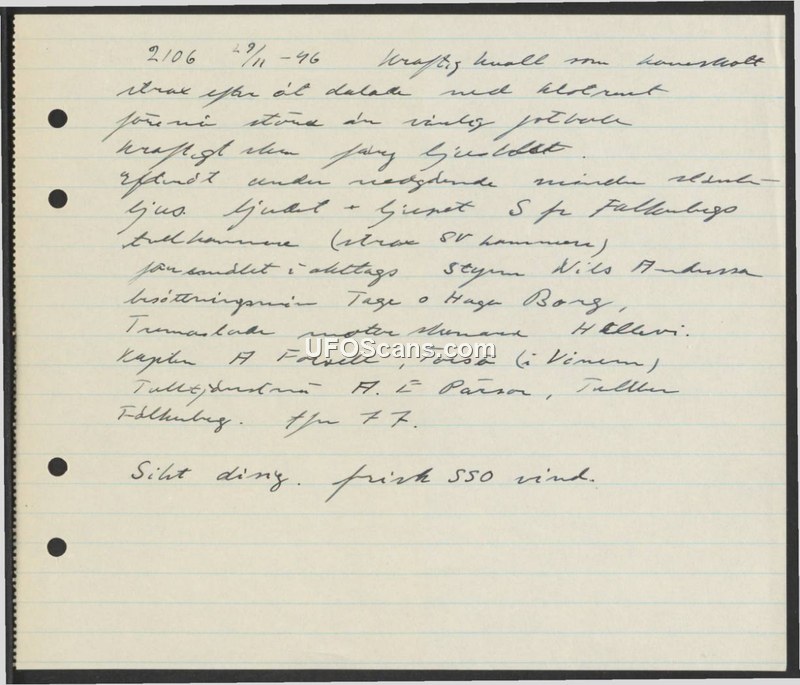 2106 29/11 -46 Kraftig knall som kanonskott
strax efter åt dalade ned klotrunt
föremål större än vanlig fotboll
kraftigt sken färg ljusblått.
Efteråt under nedgående mindre
ljus. ljudet + ljuset S fr Falkenbergs
tullkammare (strax SV kammare)
föremålet iakttags Styrm Nils Andersson
besättningsmän Tage o Hage Borg,
Tremastade motorskonare Hällevi.
Kapten A, Torsö (i Vänern)
Tulltjänstmän A. E Pärson, Tullen
Falkenberg. tfn 77.
Sikt disig. frisk SSO vind.
UFOScans.com